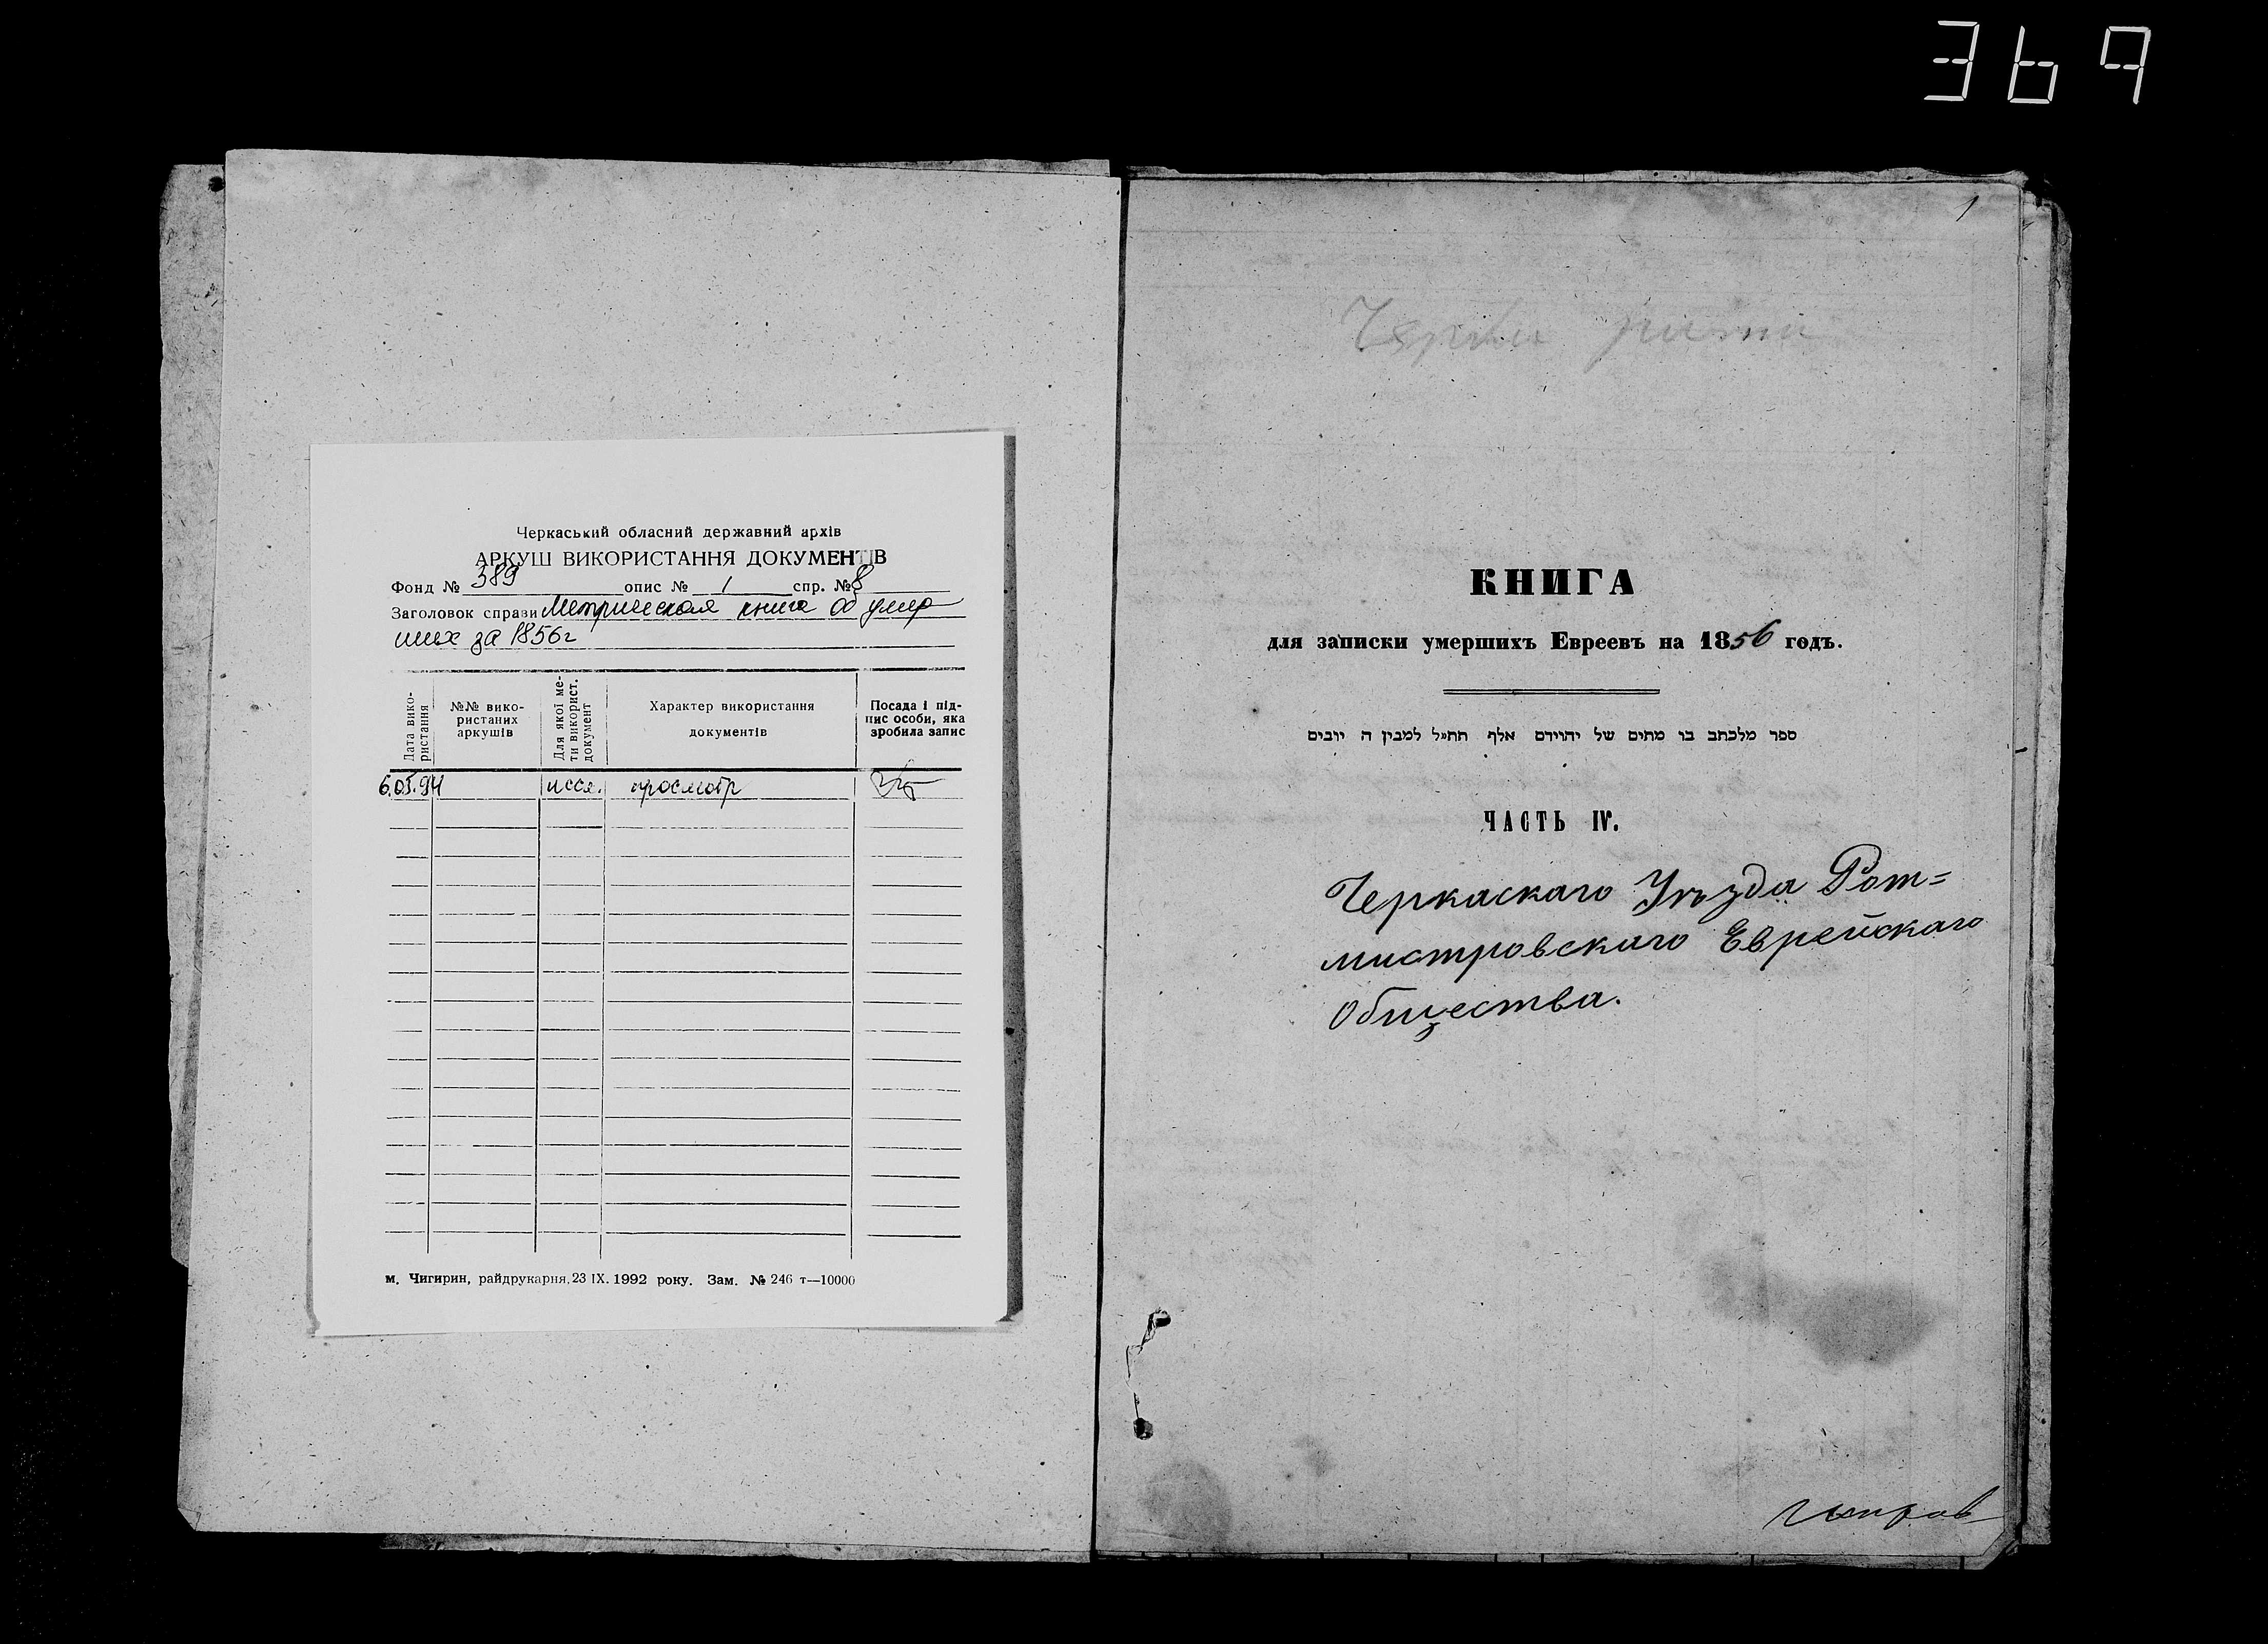 369
Черкаський обласний державний архів
АРКУШ ВИКОРИСТАННЯ ДОКУМЕНТІВ
Фонд № 389 опис № 1 спр. № 8
Заголовок справи Метрическая книга об умер
ших за 1856г
Дата вико-
ристання
№№ вико-
ристаних
аркушів
Для якої ме-
ти використ.
документ
Характер використання
документів
Посада і під-
пис особи, яка
зробила запис
6.05.94 иссл. просмотр
м. Чигирин, райдрукарня, 23 IX. 1992 року. Зам. № 246 т—10000
1
КНИГА
для записки умершихъ Евреевъ на 1856 годъ.
ספר מלכתב בו מתים של יהוידם אלף תת״ל למבין ה יובים
ЧАСТЬ IV.
Черкаскаго Уѣзда Рот=
мистровскаго Еврейскаго
Общества.